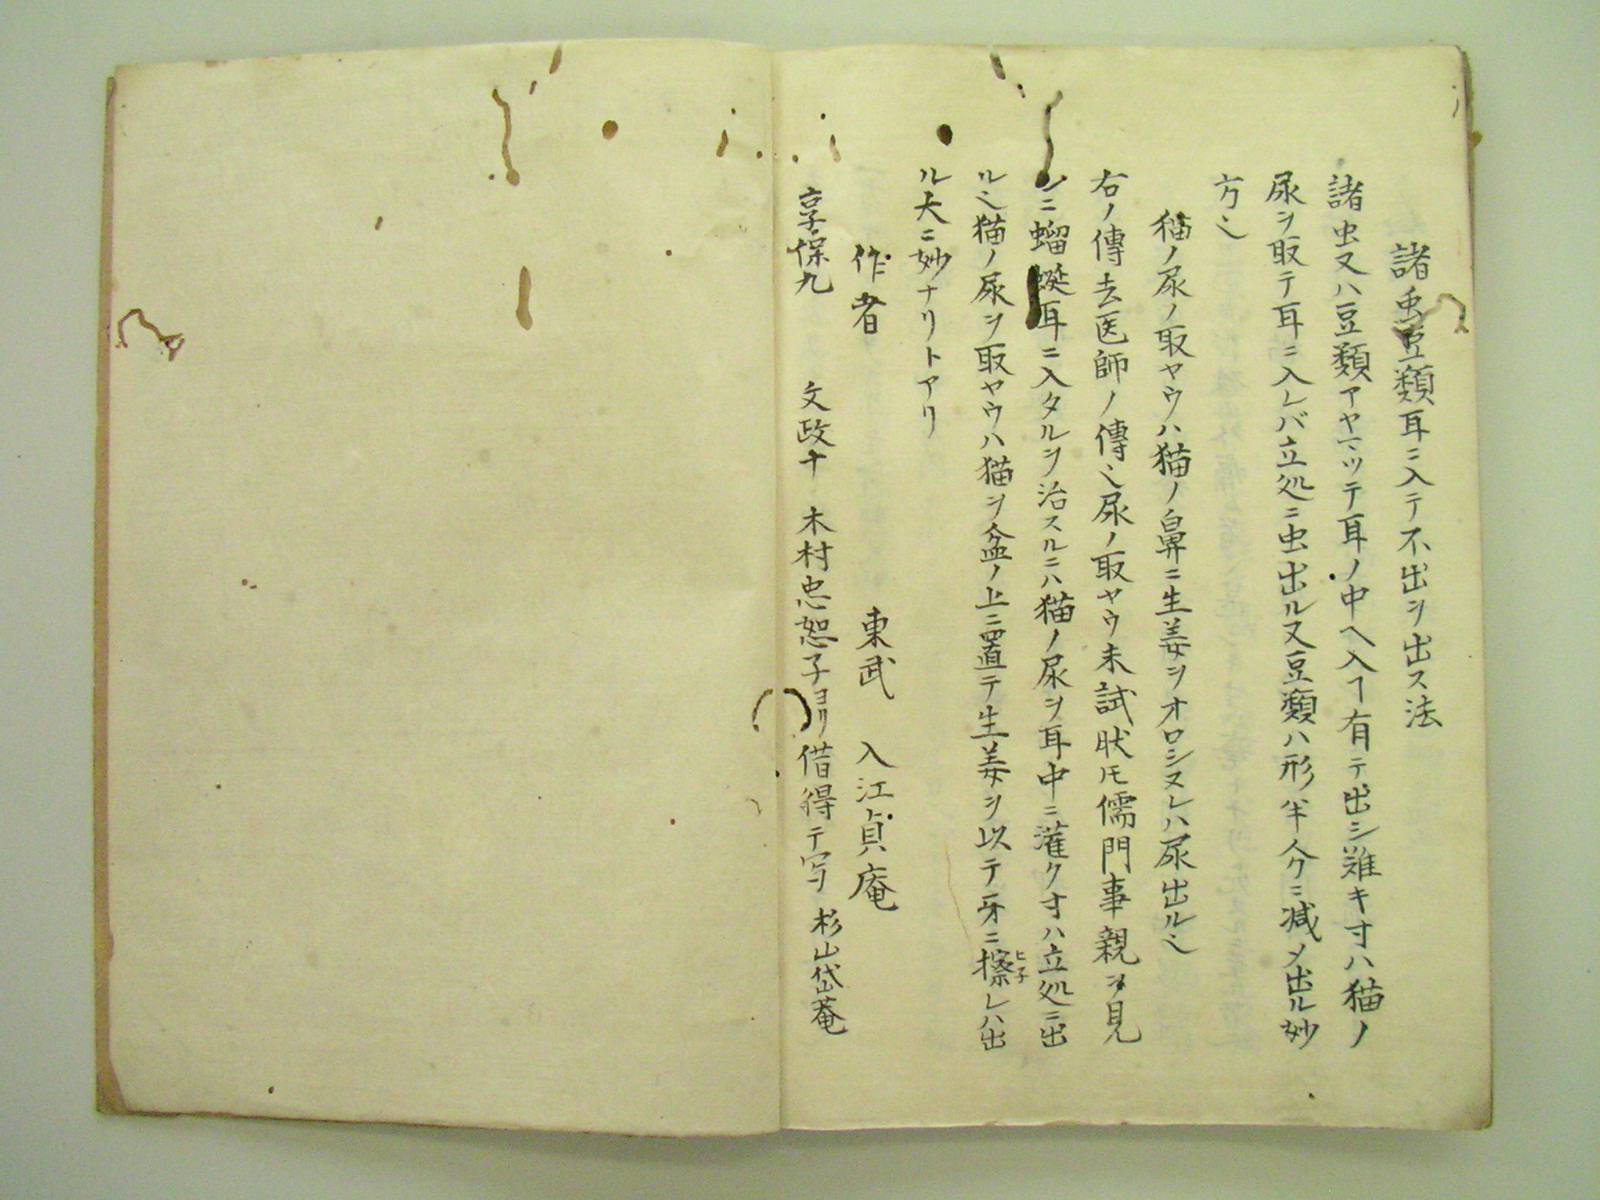 諸虫豆類耳ニ入テ不出ヲ出ス法
諸虫又ハ豆類アヤマツテ耳ノ中ヘ入ヿ有テ出シ難キ寸ハ猫ノ
尿ヲ取テ耳ニ入レバ立処ニ虫出ル又豆類ハ形半分ニ减メ出ル妙
方也
猫ノ尿ノ取ヤウハ猫ノ鼻ニ生姜ヲオロシヌレハ尿出ル也
右ノ傳去医師ノ傳也尿ノ取ヤウ未試状モ儒門事親ヲ見
シニ蝤蜒耳ニ入タルヲ治スルニハ猫ノ尿ヲ耳中ニ灌ク寸ハ立処ニ出
ル也猫ノ尿ヲ取ヤウハ猫ヲ盆ノ上ニ置テ生姜ヲ以テ牙ニ擦レハ出
ヒ子
ル大ニ妙ナリトアリ
作者 東武 入江貞庵
享保九 文政十 木村忠恕子ヨリ借得テ写 杉山岱菴